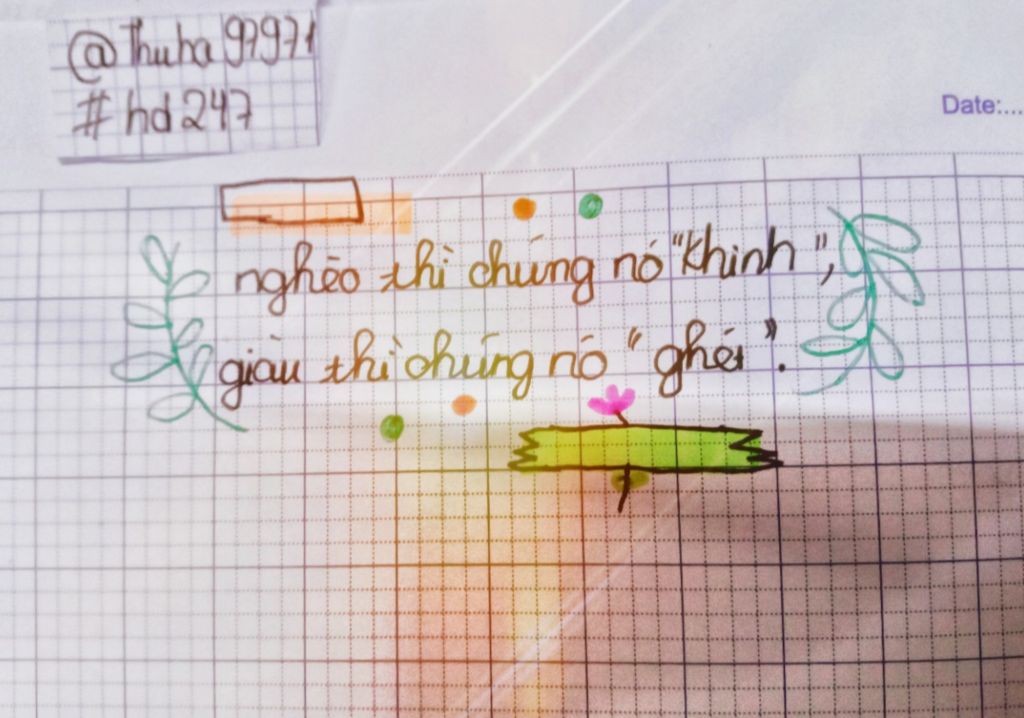 @Thuha97971
#hd247
Date:...
nghèo thì chúng nó "khinh",
giàu thì chúng nó "ghét".